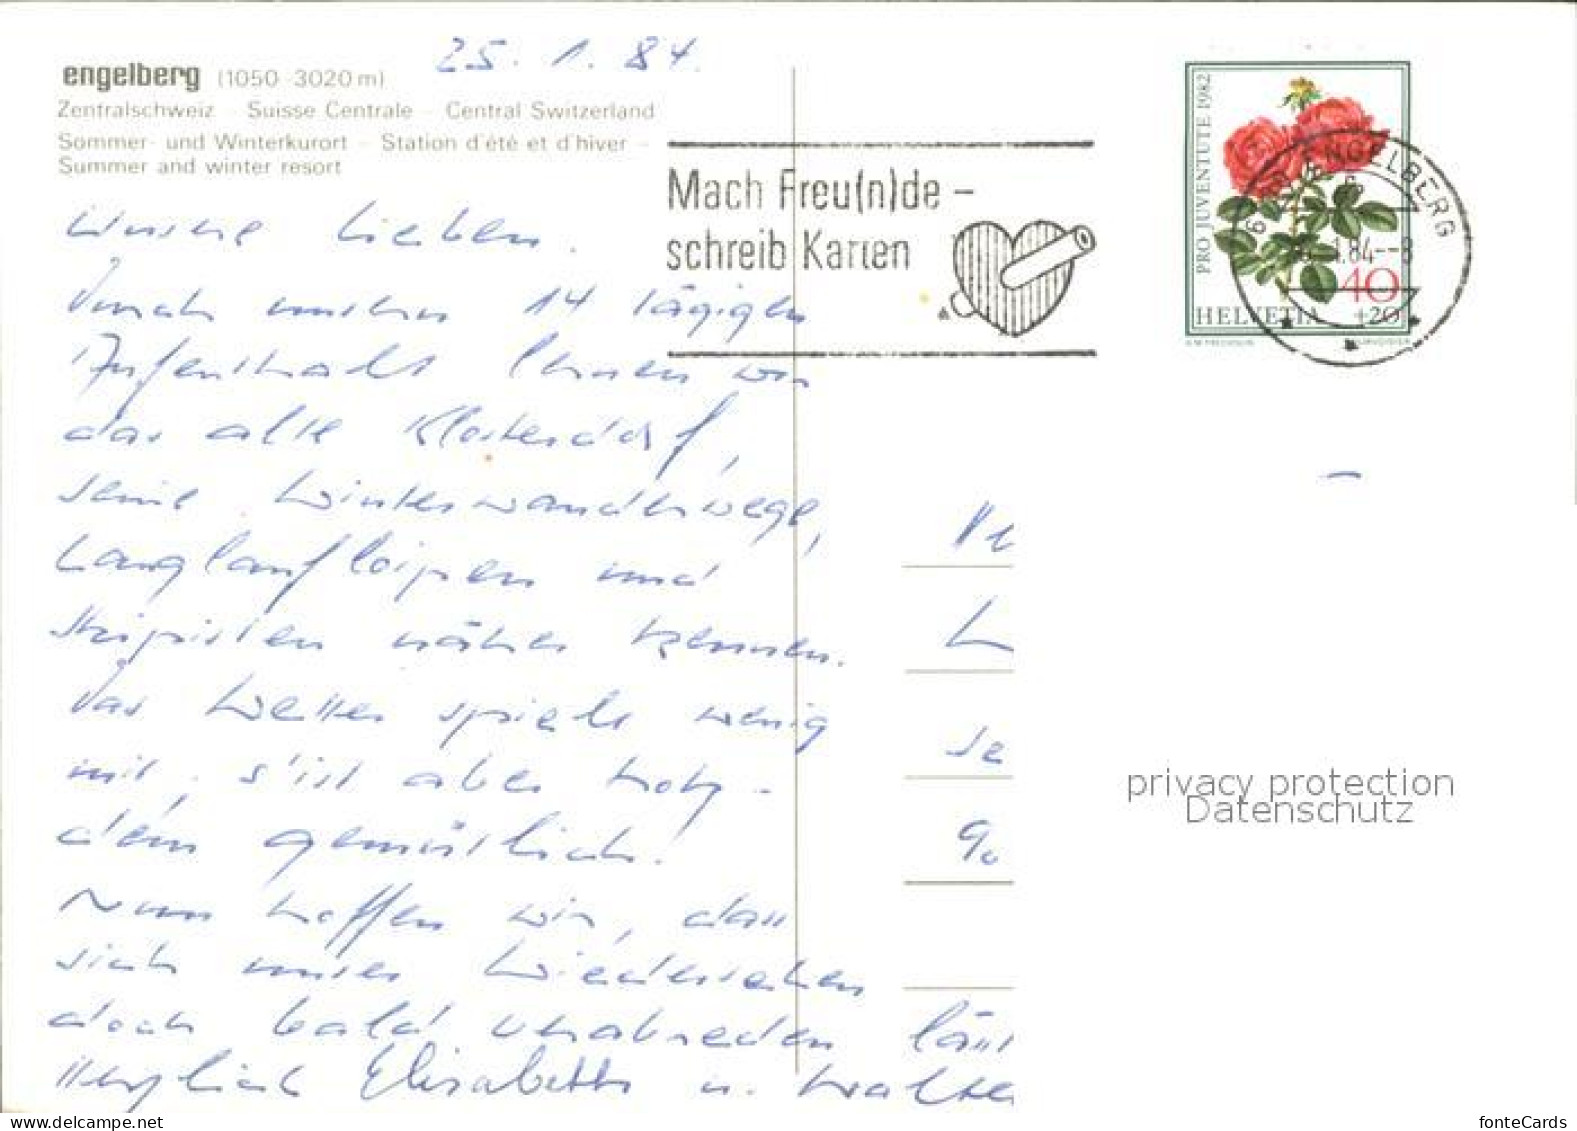 engelberg (1050-3020 m)
25. 1. 84.
Zentralschweiz - Suisse Centrale - Central Switzerland
Sommer- und Winterkurort - Station d'été et d'hiver -
Summer and winter resort
Mach Freu(n)de -
schreib Karten
PRO JUVENTUTE 1982
ENGELBERG
1.84--8
40
+20
HELVETIA
Unsere Lieben.
unseren 14 tägigen
Aufenthalt lernen wir
das alte Klosterdorf,
seine Winterwanderwege,
Langlaufloipen und
Skipisten näher kennen.
Das Wetter spielt wenig
mit, s'ist aber trotz-
dem gemütlich.
Nun hoffen wir, dass
sich unser Wiedersehen
doch bald verabreden läss
Herzlich Elisabeth u. Walte
L
Se
90
privacy protection
Datenschutz
fonteCards